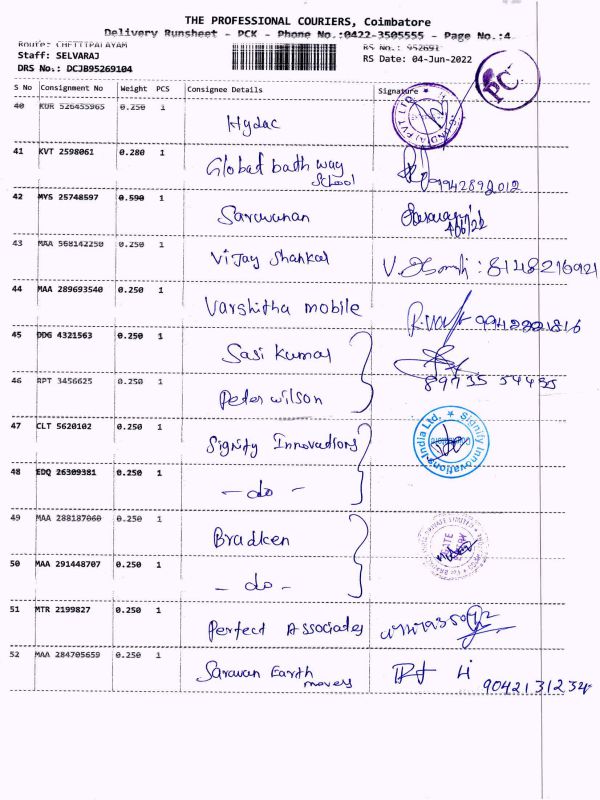 THE PROFESSIONAL COURIERS, Coimbatore
Delivery Runsheet - PCK - Phone No.:0422-3505555 - Page No.:4
Route: CHETTIPALAYAM RS No.: 952691
Staff: SELVARAJ RS Date: 04-Jun-2022
DRS No.: DCJB95269104
S No Consignment No Weight PCS Consignee Details Signature
40 KUR 526455965 0.250 1 Hydac
PC
41 KVT 2598061 0.280 1 Global bath way
School 9942892012
42 MYS 25748597 0.590 1 Saravanan
43 MAA 568142250 0.250 1 Vijay Shankar : 8148216921
44 MAA 289693540 0.250 1 Varshitha mobile
45 DDG 4321563 0.250 1 Sasi Kumar
46 RPT 3456625 0.250 1 Peter Wilson
47 CLT 5620102 0.250 1 Signify Innovations
Signify Innovations India Ltd.
48 EDQ 26309381 0.250 1 - do -
49 MAA 288187060 0.250 1 Bradken
50 MAA 291448707 0.250 1 - do -
51 MTR 2199827 0.250 1 Perfect Associates
52 MAA 284705659 0.250 1 Saravan Earth
movers